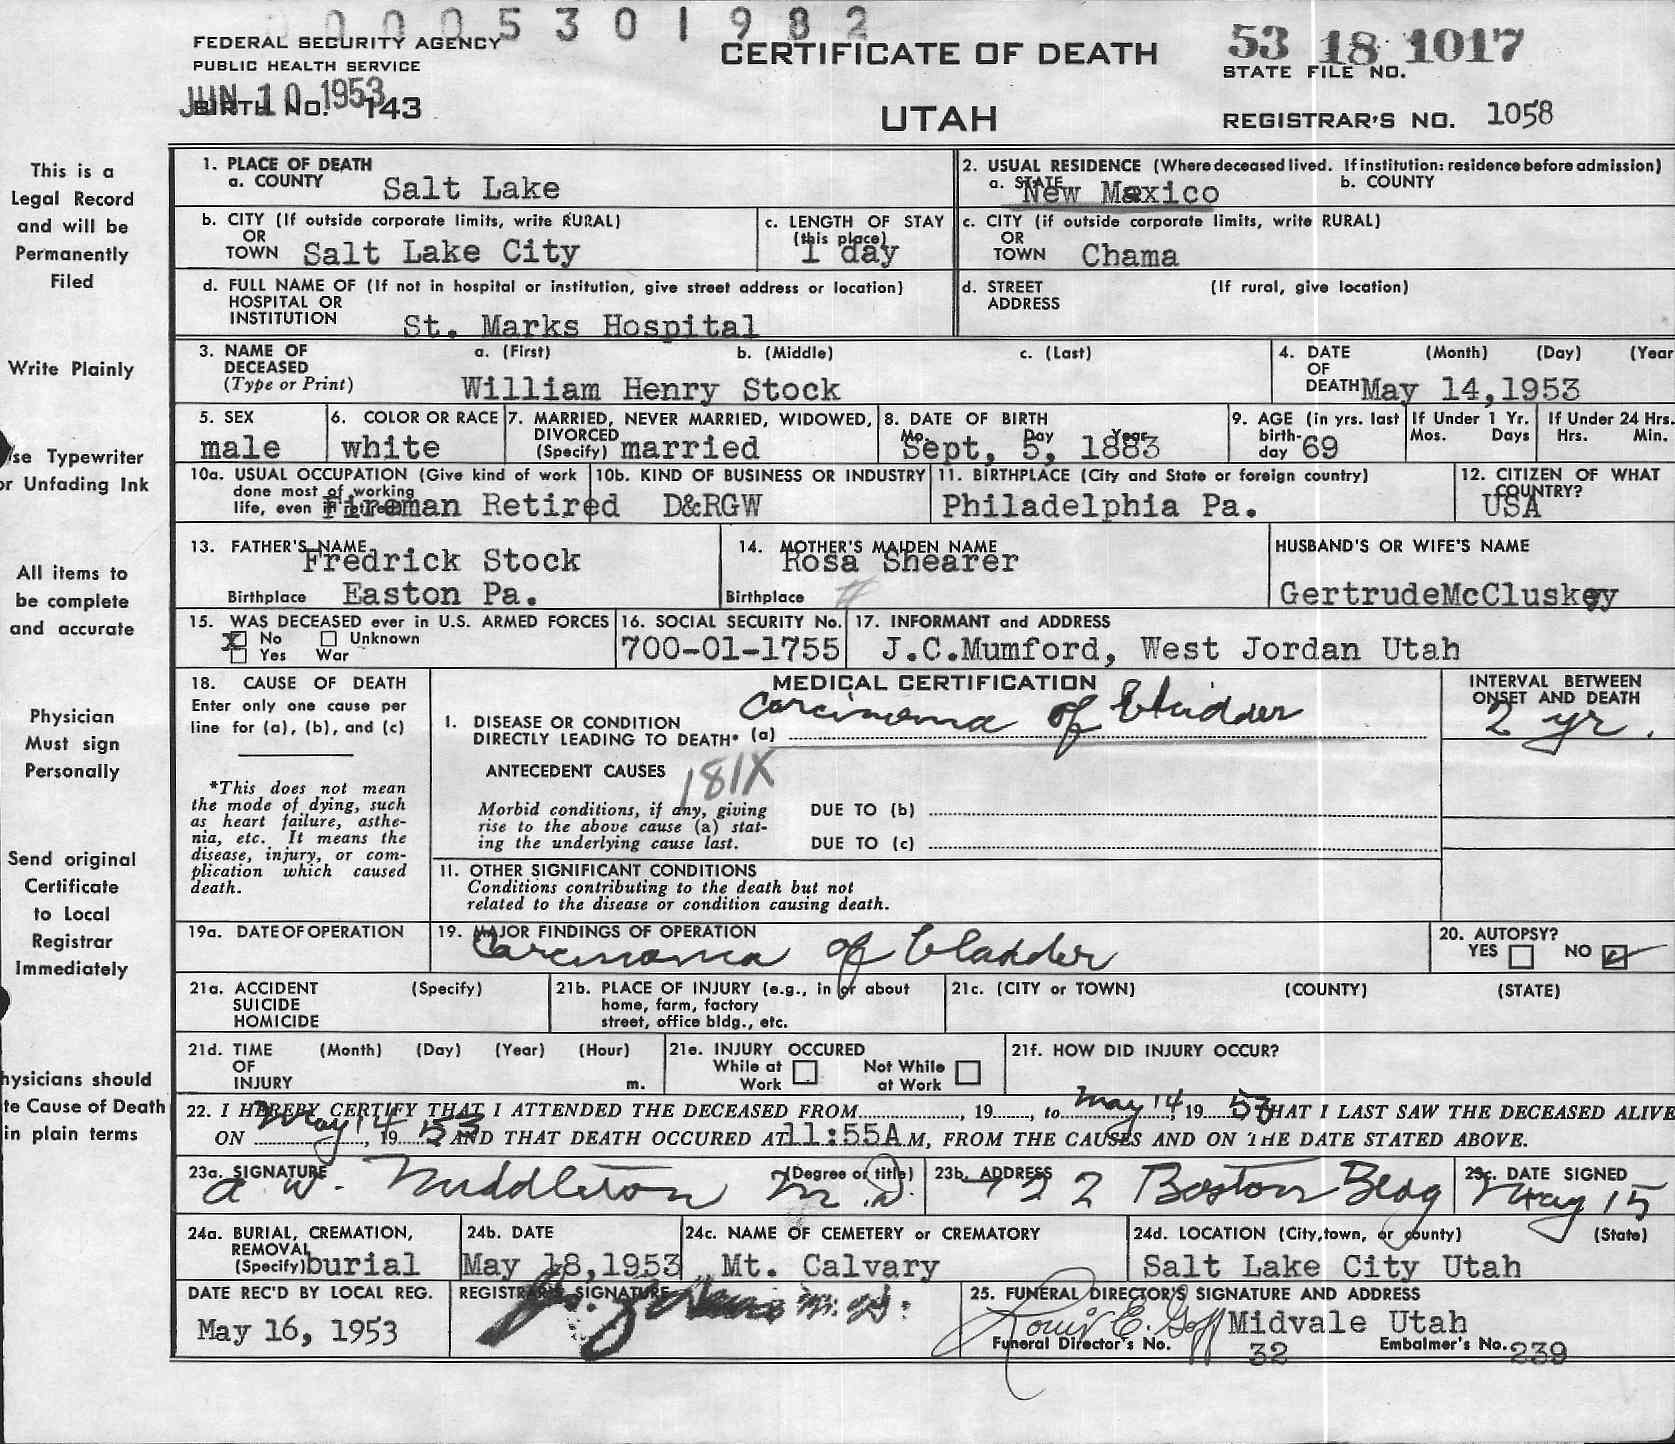 0005301982
FEDERAL SECURITY AGENCY
PUBLIC HEALTH SERVICE
JUN 10 1953
BIRTH NO. 143
CERTIFICATE OF DEATH
UTAH
53 18 1017
STATE FILE NO.
REGISTRAR'S NO. 1058
This is a
Legal Record
and will be
Permanently
Filed
Write Plainly
se Typewriter
or Unfading Ink
All items to
be complete
and accurate
Physician
Must sign
Personally
Send original
Certificate
to Local
Registrar
Immediately
hysicians should
te Cause of Death
in plain terms
1. PLACE OF DEATH
a. COUNTY Salt Lake
2. USUAL RESIDENCE (Where deceased lived. If institution: residence before admission)
a. STATE New Mexico b. COUNTY
b. CITY (If outside corporate limits, write RURAL)
OR
TOWN Salt Lake City
c. LENGTH OF STAY
(this place)
1 day
c. CITY (if outside corporate limits, write RURAL)
OR
TOWN Chama
d. FULL NAME OF (If not in hospital or institution, give street address or location)
HOSPITAL OR
INSTITUTION St. Marks Hospital
d. STREET (If rural, give location)
ADDRESS
3. NAME OF a. (First) b. (Middle) c. (Last)
DECEASED
(Type or Print) William Henry Stock
4. DATE (Month) (Day) (Year
OF
DEATH May 14,1953
5. SEX
male
6. COLOR OR RACE
white
7. MARRIED, NEVER MARRIED, WIDOWED,
DIVORCED
(Specify) married
8. DATE OF BIRTH
Mo. Day Year
Sept, 5, 1883
9. AGE (in yrs. last
birth-
day 69
If Under 1 Yr.
Mos. Days
If Under 24 Hrs.
Hrs. Min.
10a. USUAL OCCUPATION (Give kind of work
done most of working
life, even if retired) Fireman Retired
10b. KIND OF BUSINESS OR INDUSTRY
D&RGW
11. BIRTHPLACE (City and State or foreign country)
Philadelphia Pa.
12. CITIZEN OF WHAT
COUNTRY?
USA
13. FATHER'S NAME
Fredrick Stock
Birthplace Easton Pa.
14. MOTHER'S MAIDEN NAME
Rosa Shearer
Birthplace
HUSBAND'S OR WIFE'S NAME
GertrudeMcCluskey
15. WAS DECEASED ever in U.S. ARMED FORCES
X No Unknown
Yes War
16. SOCIAL SECURITY No.
700-01-1755
17. INFORMANT and ADDRESS
J.C.Mumford, West Jordan Utah
18. CAUSE OF DEATH
Enter only one cause per
line for (a), (b), and (c)
*This does not mean
the mode of dying, such
as heart failure, asthe-
nia, etc. It means the
disease, injury, or com-
plication which caused
death.
MEDICAL CERTIFICATION
I. DISEASE OR CONDITION
DIRECTLY LEADING TO DEATH* (a) Carcinoma of bladder
INTERVAL BETWEEN
ONSET AND DEATH
2 yr.
ANTECEDENT CAUSES 181X
Morbid conditions, if any, giving
rise to the above cause (a) stat-
ing the underlying cause last.
DUE TO (b)
DUE TO (c)
11. OTHER SIGNIFICANT CONDITIONS
Conditions contributing to the death but not
related to the disease or condition causing death.
19a. DATE OF OPERATION
19. MAJOR FINDINGS OF OPERATION
Carcinoma of bladder
20. AUTOPSY?
YES NO ✓
21a. ACCIDENT (Specify)
SUICIDE
HOMICIDE
21b. PLACE OF INJURY (e.g., in or about
home, farm, factory
street, office bldg., etc.
21c. (CITY or TOWN) (COUNTY) (STATE)
21d. TIME (Month) (Day) (Year) (Hour)
OF
INJURY m.
21e. INJURY OCCURED
While at Not While
Work at Work
21f. HOW DID INJURY OCCUR?
22. I HEREBY CERTIFY THAT I ATTENDED THE DECEASED FROM, 19, to May 14, 19 53 THAT I LAST SAW THE DECEASED ALIVE
ON May 14, 19 53 AND THAT DEATH OCCURED AT 11:55A M, FROM THE CAUSES AND ON THE DATE STATED ABOVE.
23a. SIGNATURE (Degree or title)
A W. Middleton M.D.
23b. ADDRESS
722 Boston Bldg
23c. DATE SIGNED
May 15
24a. BURIAL, CREMATION,
REMOVAL
(Specify) burial
24b. DATE
May 18,1953
24c. NAME OF CEMETERY or CREMATORY
Mt. Calvary
24d. LOCATION (City,town, or county) (State)
Salt Lake City Utah
DATE REC'D BY LOCAL REG.
May 16, 1953
REGISTRAR'S SIGNATURE
M.D.
25. FUNERAL DIRECTOR'S SIGNATURE AND ADDRESS
Louis E. Goff Midvale Utah
Funeral Director's No. 32 Embalmer's No. 239